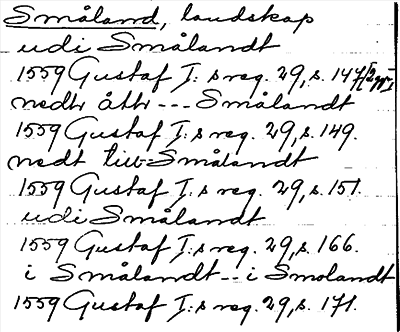 Småland, landskap
udi Smålandt
1559 Gustaf I:s reg. 29, s. 147 (2 ggr),
nedhr åthr --- Smålandt
1559 Gustaf I:s reg. 29, s. 149.
nedt till Smålandt
1559 Gustaf I:s reg. 29, s. 151.
udi Smålandt
1559 Gustaf I:s reg. 29, s. 166.
i Smålandt -- i Smolandt
1559 Gustaf I:s reg. 29, s. 171.